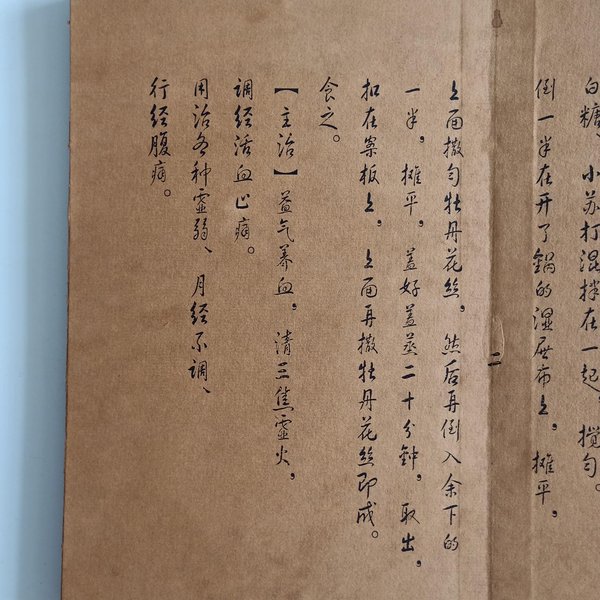 白糖 小苏打混拌在一起，搅匀。
倒一半在开了鍋的湿屉布上，摊平，
二
上面撒匀牡丹花丝，然后再倒入余下的
一半，摊平，盖好盖蒸二十分鐘，取出，
扣在案板上，上面再撒牡丹花丝即成。
食之。
【主治】益气养血，清三焦虚火，
调经活血止痛。
用治各种虚弱、月经不调、
行经腹痛。